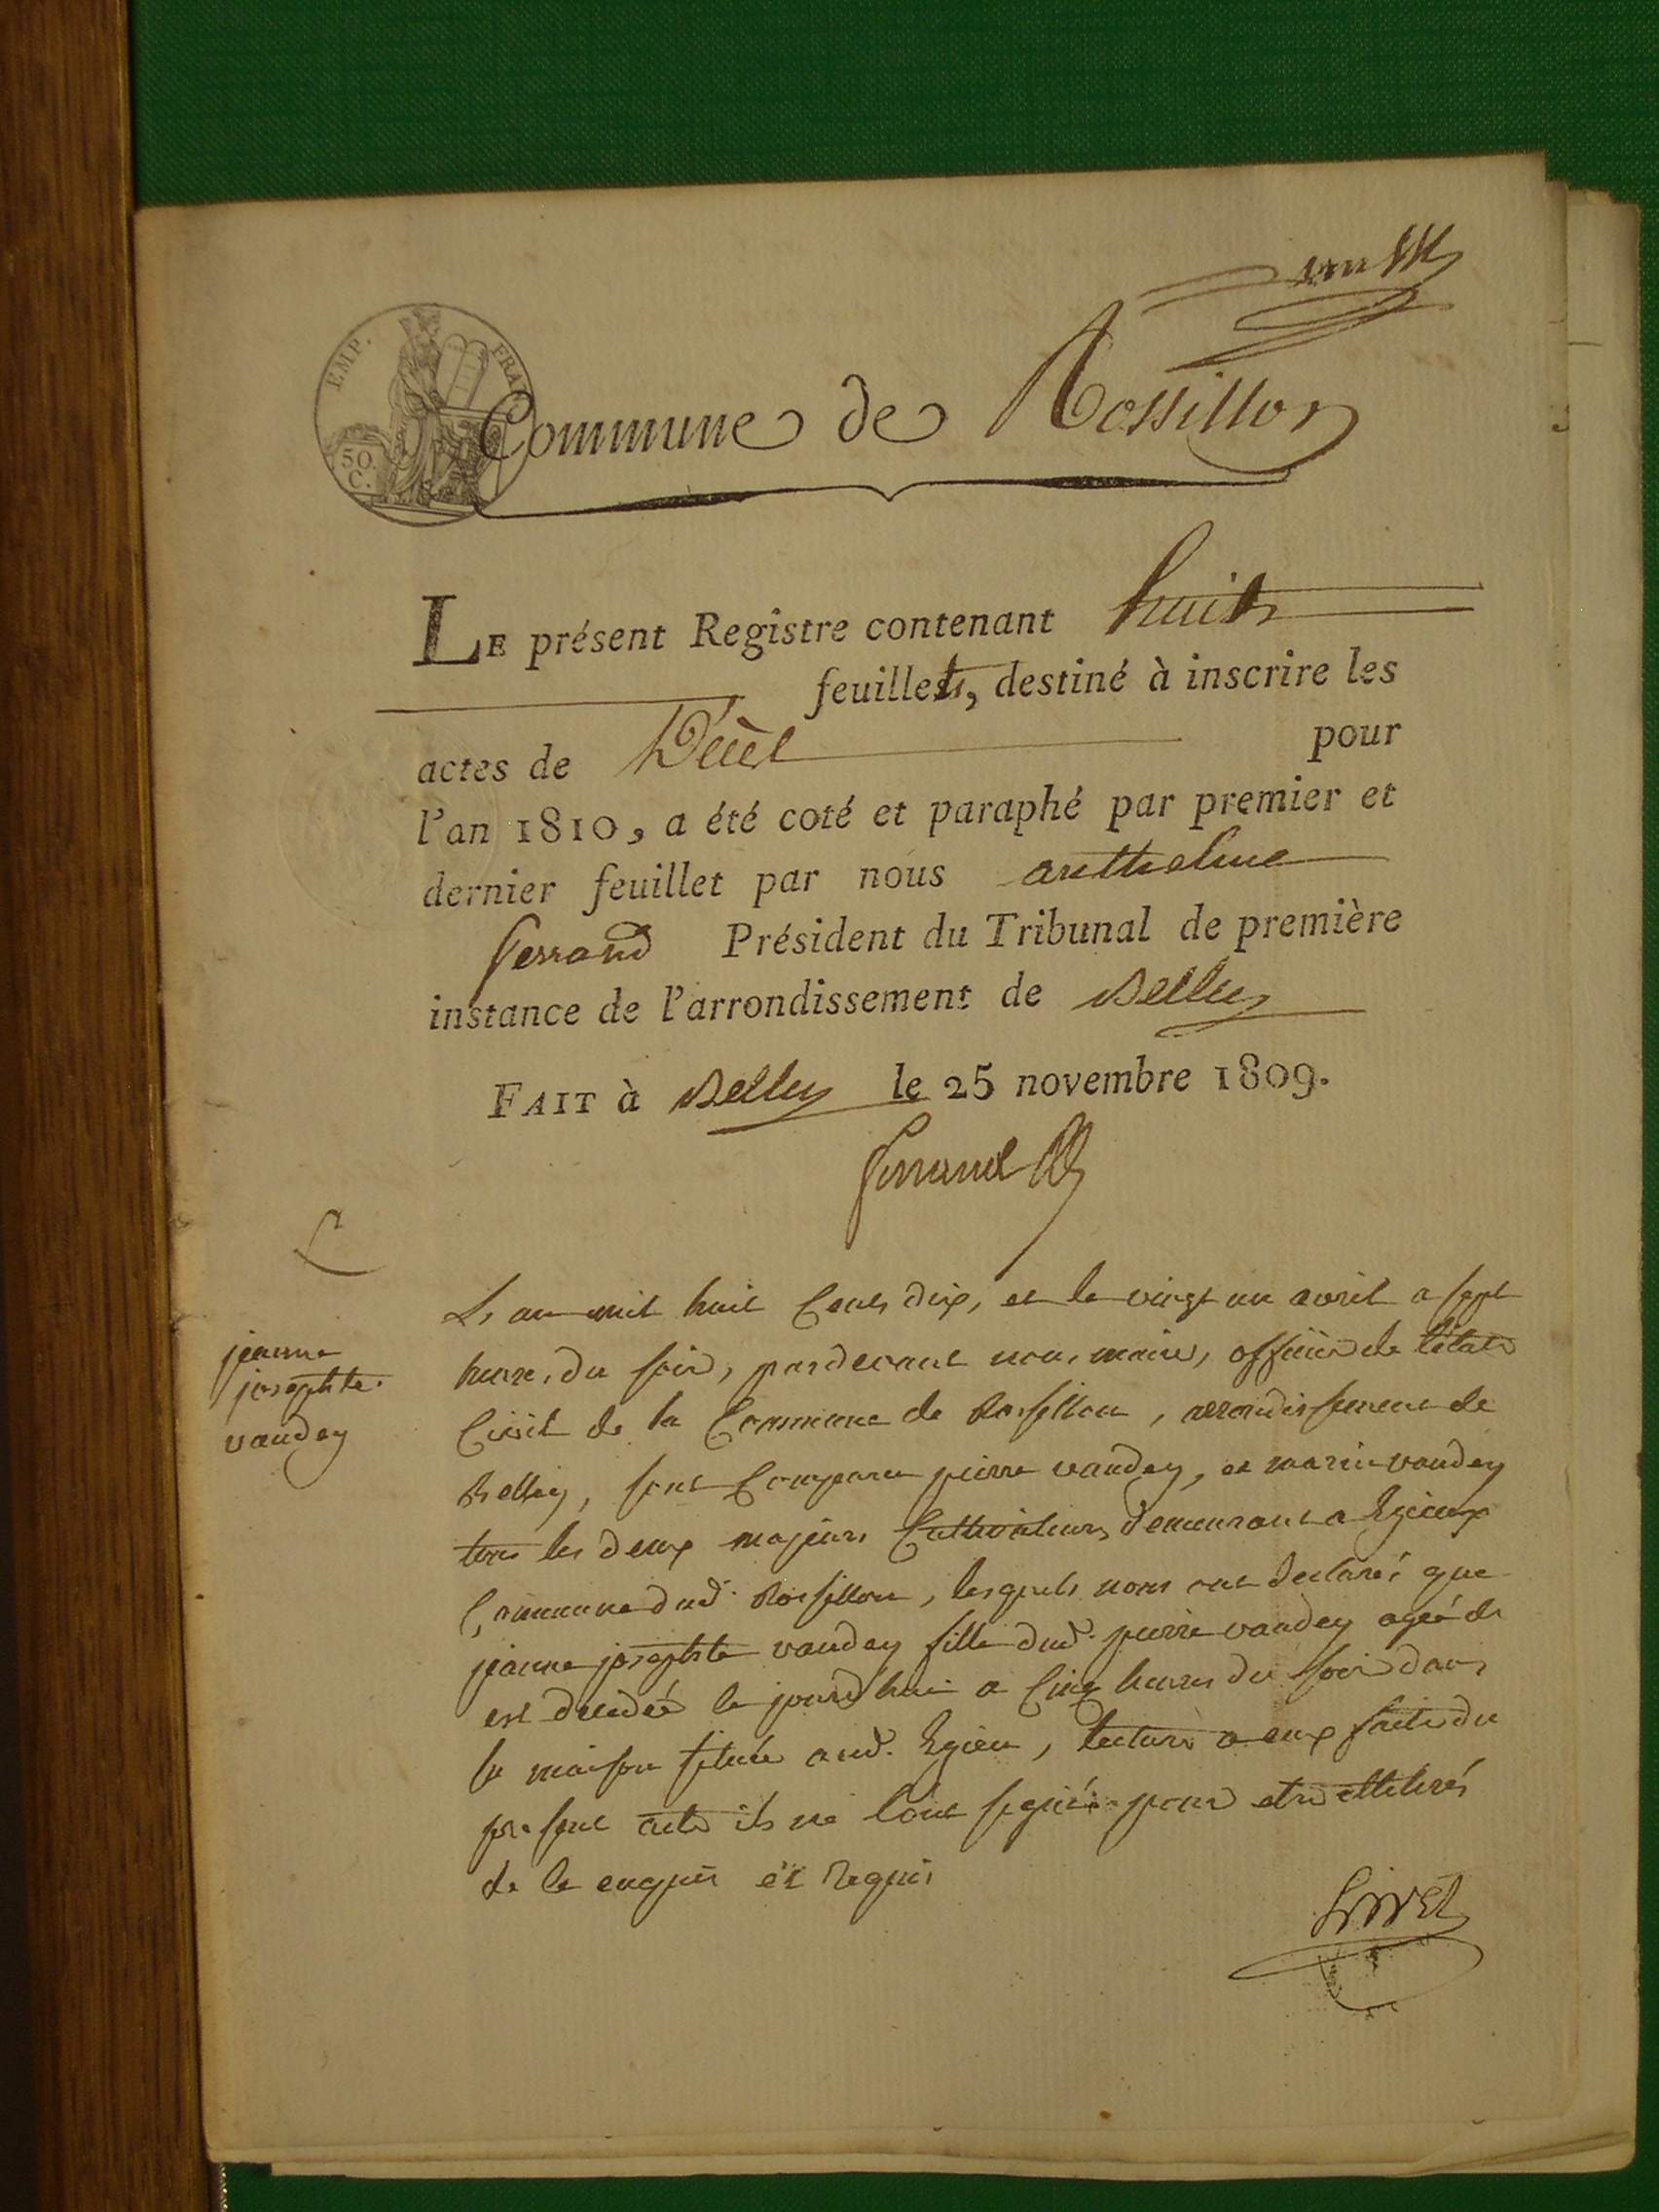 un
EMP. FRAN.
50 C.
Commune de Rossillon
LE présent Registre contenant huit
feuillets, destiné à inscrire les
actes de Décès pour
l'an 1810, a été coté et paraphé par premier et
dernier feuillet par nous anthelme
ferrand Président du Tribunal de première
instance de l'arrondissement de Belley
FAIT à Belley le 25 novembre 1809.
ferrand
jeanne
josephte
vaudey
L an mil huit Cent dix, et le vingt un avril a sept
heures du soir, pardevant nous maire, officier de l'etat
Civil de la Commune de Rossillon, arrondissement de
Belley, sont Comparu pierre vaudey, et marin vaudey
tous les deux majeurs Cultivateurs demeurant a Egieux
Commune dud. Rossillon, lesquels nous ont declarés que
jeanne josephte vaudey fille dud. pierre vaudey agée de
est decedée le jourdhui a Cinq heures du soir dans
sa maison située aud. Egieu, lecture a eux faite du
present acte ils ne l'ont signé pour etre illiterés
de le enquis et Requis